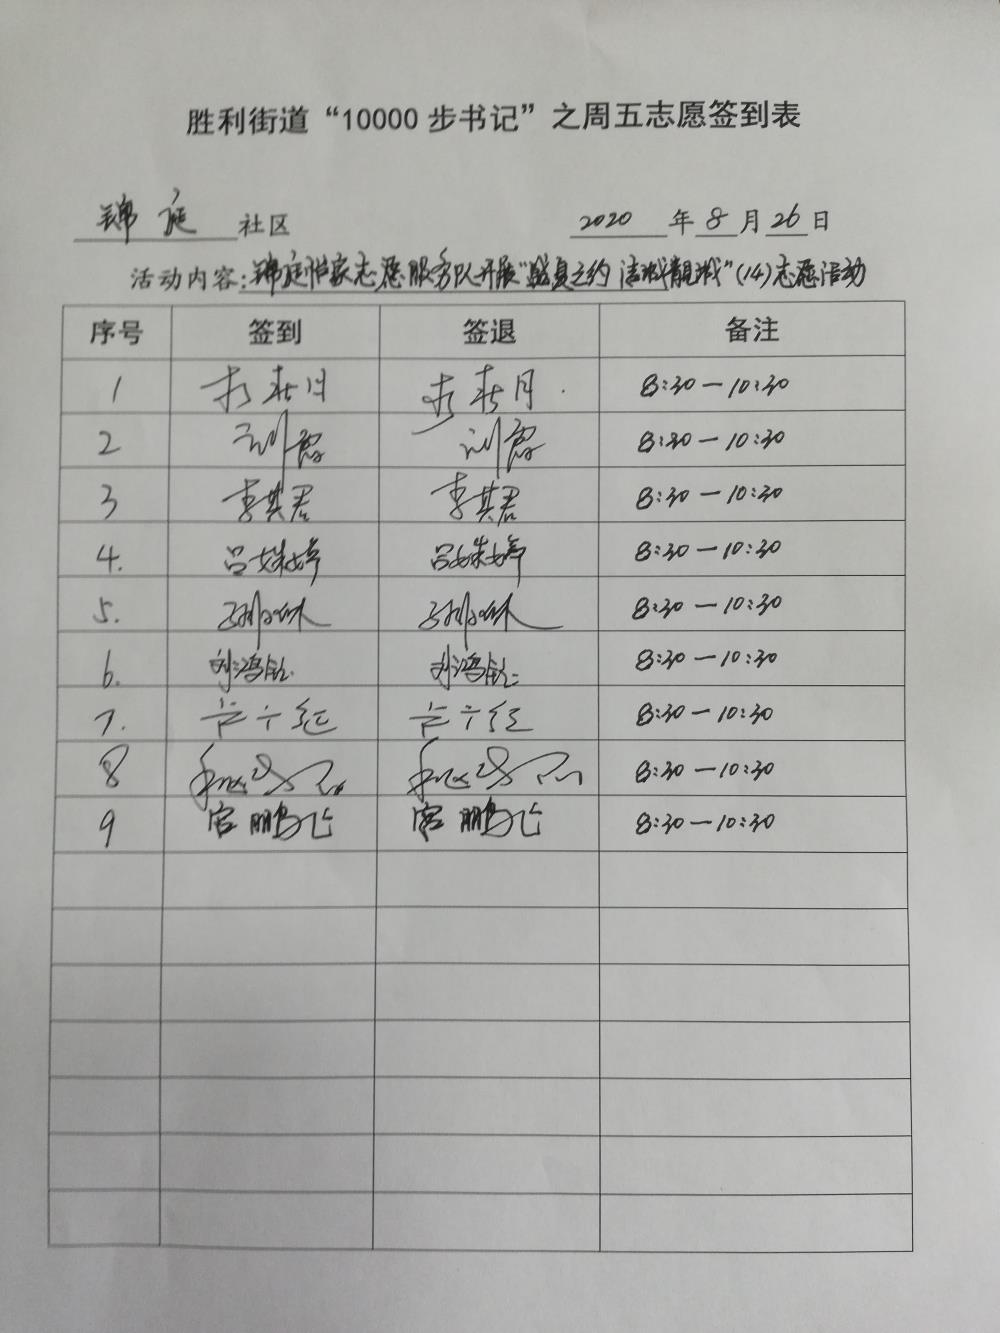 胜利街道“10000步书记”之周五志愿签到表
锦庭社区 2020年8月26日
活动内容：锦庭管家志愿服务队开展“盛夏之约 清城靓城”(14)志愿活动
序号 签到 签退 备注
1 8:30—10:30
2 刘霞 刘霞 8:30—10:30
3 李其君 李其君 8:30—10:30
4. 吕姝婷 吕姝婷 8:30—10:30
5. 8:30—10:30
6. 刘鸿钰 刘鸿钰 8:30—10:30
7. 8:30—10:30
8 8:30—10:30
9 宫鹏飞 宫鹏飞 8:30—10:30